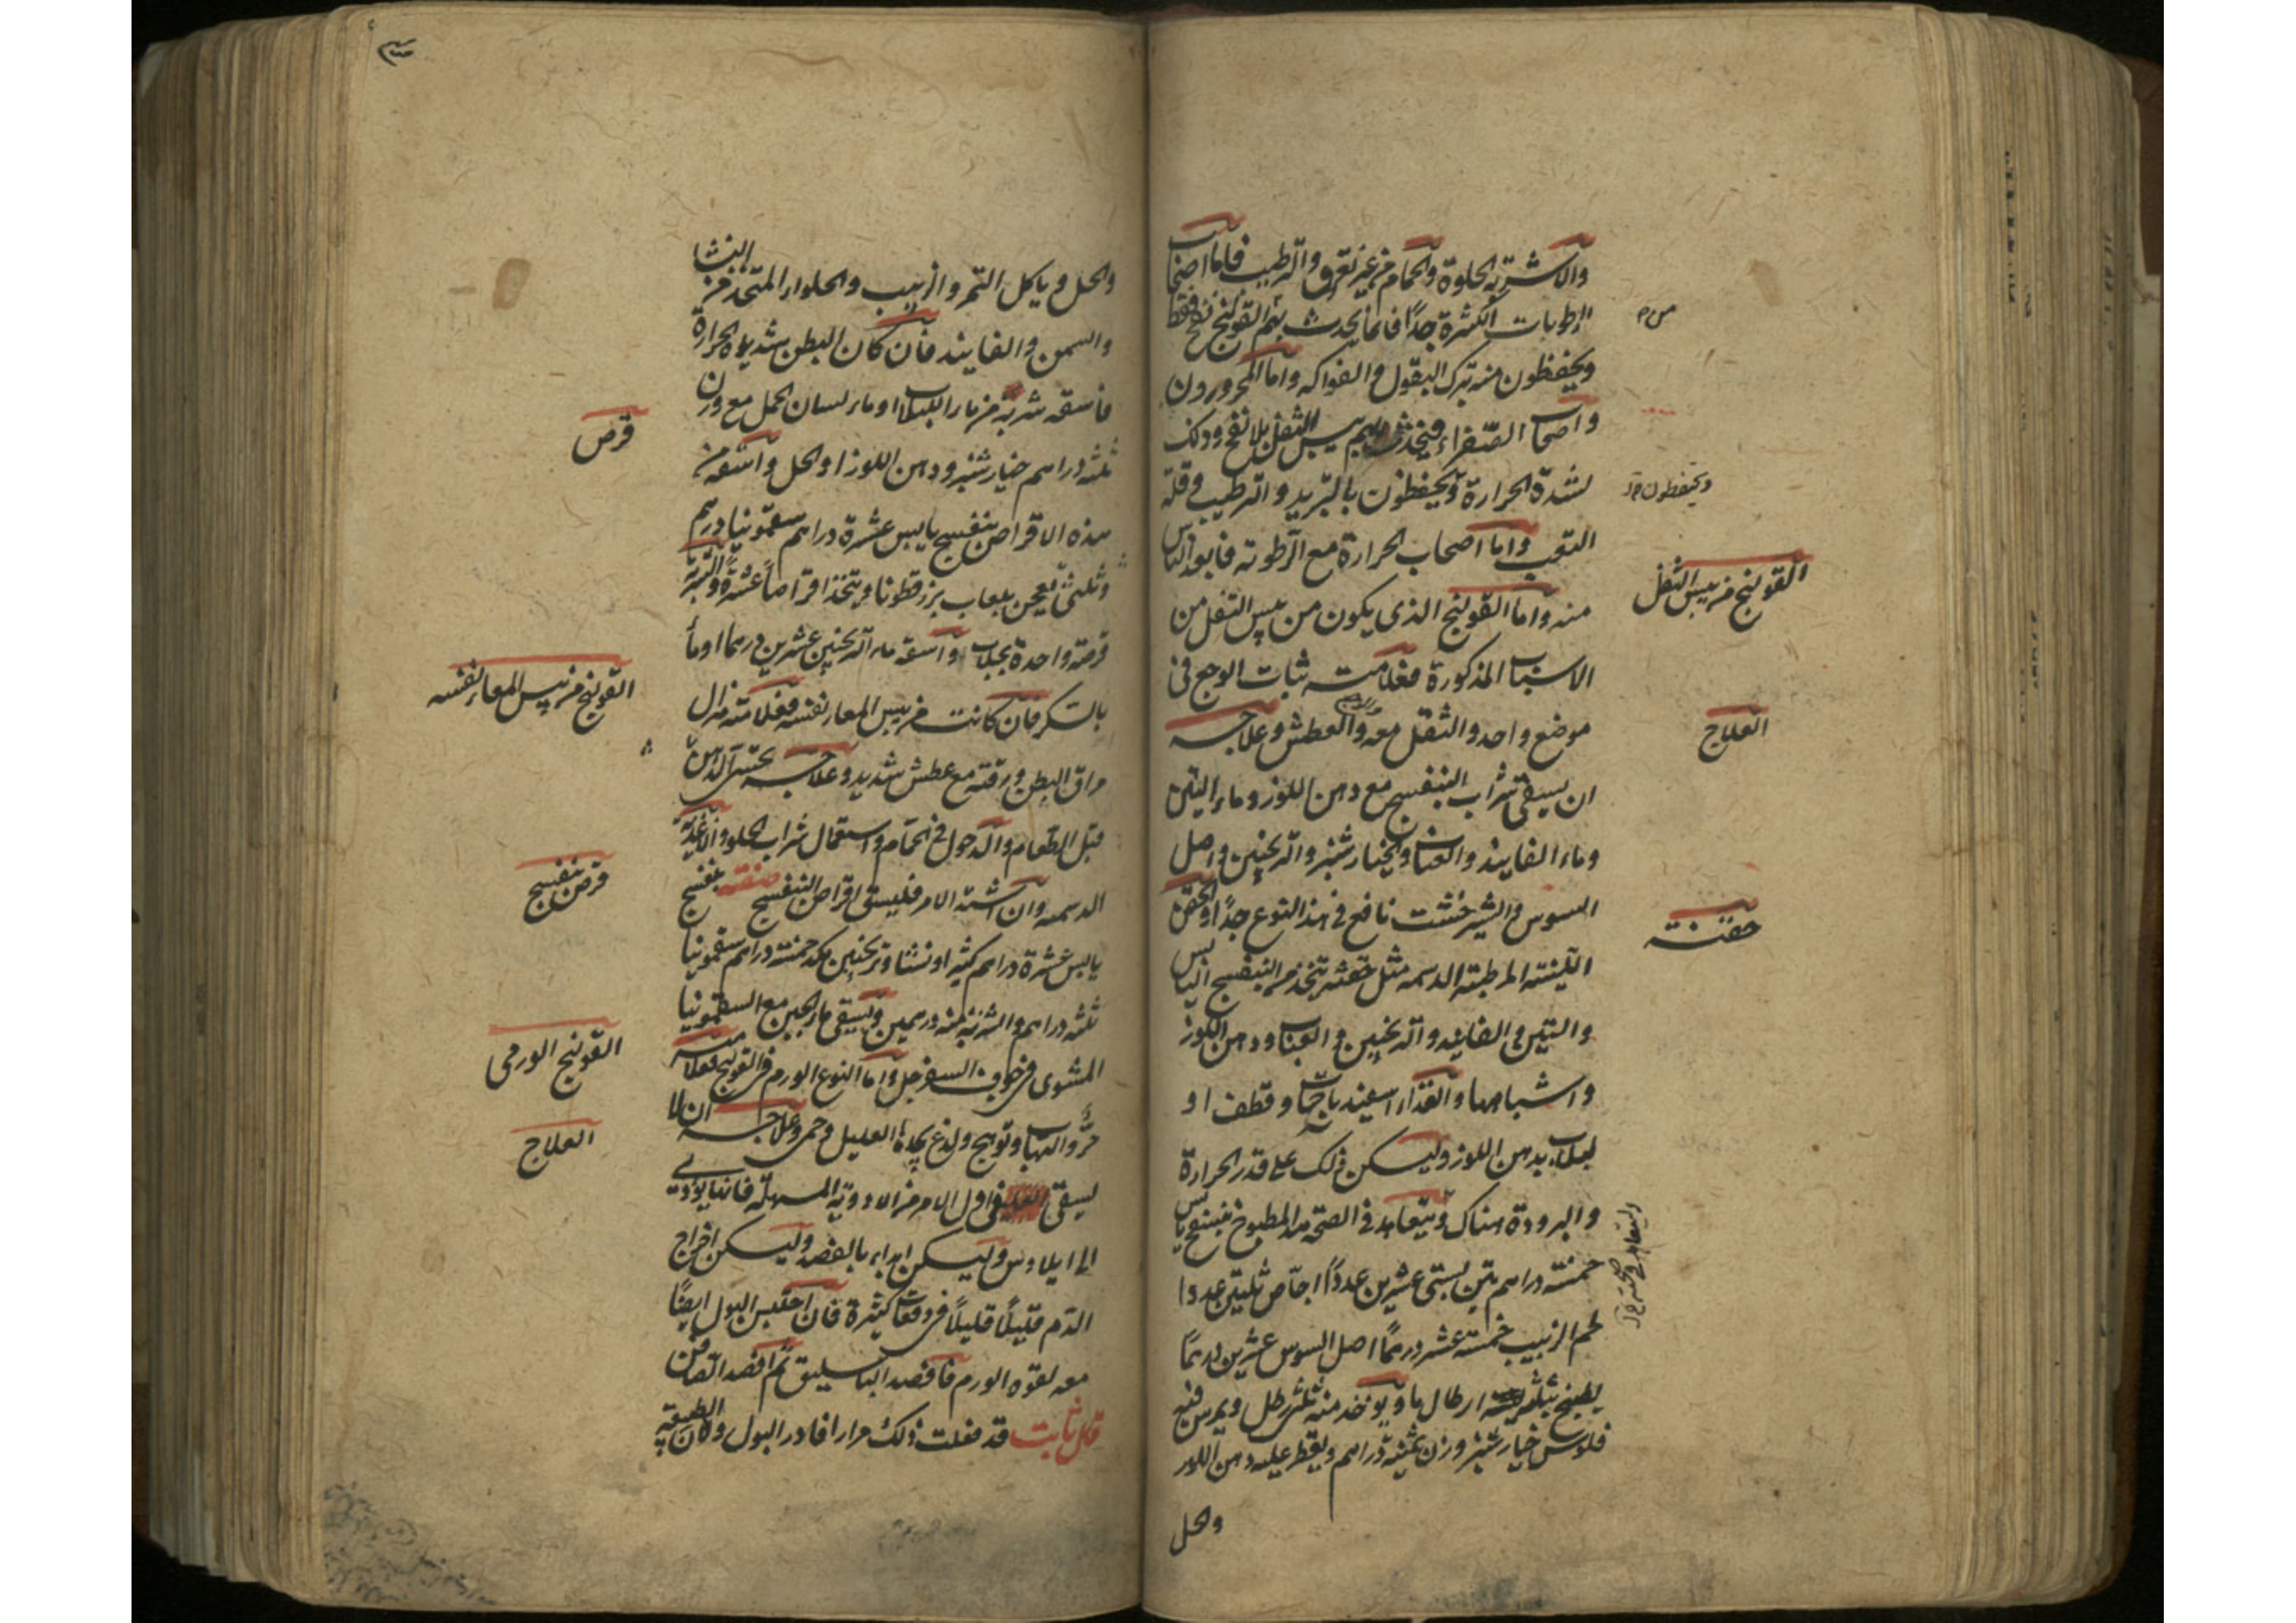 والاشربة الحلوة والحمام من غير تعرق والترطيب فاما اصحاب
الرطوبات الكثيرة جدا فانما يحدث بهم القولنج نفخ فقط
ويحفظون منه بترك البقول والفواكه واما المحرورون
واصحاب الصفراء فيحدث بهم يبس الثفل بلا نفخ وذلك
لشدة الحرارة ويحفظون بالتبريد والترطيب وقلة
ويحفظون
التعب واما اصحاب الحرارة مع الرطوبة فابعد الناس
منه واما القولنج الذى يكون من يبس الثفل من
القولنج من يبس الثفل
الاسباب المذكورة فعلامته ثبات الوجع فى
موضع واحد والثقل معه والعطش وعلاجه
العلاج
ان يسقى شراب البنفسج مع دهن اللوز وماء التين
وماء الفانيذ والعناب والخيارشنبر والترنجبين واصل
السوس والشيرخشت نافع فى هذا النوع جدا والحقن
حقنة
اللينة المرطبة الدسمة مثل حقنة تتخذ من البنفسج اليابس
والتين والفانيذ والترنجبين والعناب ودهن اللوز
واشباهها والغذاء اسفيذباجات وقطف او
لبلاب بدهن اللوز وليكن ذلك على قدر الحرارة
والبرودة هناك ويتعاهد فى الصحة هذا المطبوخ بنفسج يابس
خمسة دراهم تين بستى عشرين عددا اجاص ثلثين عددا
لحم الزبيب خمسة عشر درهما اصل السوس عشرين درهما
يطبخ بثلثة ارطال ماء ويوخذ منه ثلثى رطل ويمرس فيه
فلوس خيارشنبر وزن ثمنية دراهم ويقطر عليه دهن اللوز
والحل
والحل وياكل التمر والزبيب والحلواء المتخذ من النشا
والسمن والفانيذ فان كان البطن شديد الحرارة
فاسقه شربة من ماء اللبلاب او ماء لسان الحمل مع وزن
ثلثة دراهم خيارشنبر ودهن اللوز او الحل واسقه من
قرص
هذه الاقراص بنفسج يابس عشرة دراهم سقمونيا درهم
وثلثى يعجن بلعاب بزرقطونا ويتخذ اقراصا عشرة والشربة
قرصة واحدة بجلاب واسقه ماء الترنجبين عشرين درهما او ماء
بالسكر فان كانت من يبس المعاء نفسه فعلامته هزال
القولنج من يبس المعاء نفسه
مراق البطن ورقته مع عطش شديد وعلاجه تحسى الدهن
قبل الطعام والدخول فى الحمام واستعمال شراب الحلو والاغذية
الدسمة وان اشتد الامر فليسق اقراص البنفسج صفته بنفسج
قرص بنفسج
يابس عشرة دراهم كثيرا ونشا وترنجبين يكد خمسة دراهم سقمونيا
ثلثة دراهم والشربة منه درهمين ويسقى ماء الجبن مع السقمونيا
المشوى فى جوف السفرجل واما النوع الورم فى القولنج فعلامته
القولنج الورمى
حر والتهاب وتوهج ولذع يجدها العليل وحمى وعلاجه ان لا
العلاج
يسقى العليل فى اول الامر من الادوية المسهلة فانها يودى
الى ايلاوس وليكن ابداء بالفصد وليكن اخراج
الدم قليلا قليلا فى دفعات كثيرة فان احتبس البول ايضا
معه لقوة الورم فافصد الباسليق ثم افصد الصافن
قال ثابت قد فعلت ذلك مرارا فادر البول ولان الطبيعة به